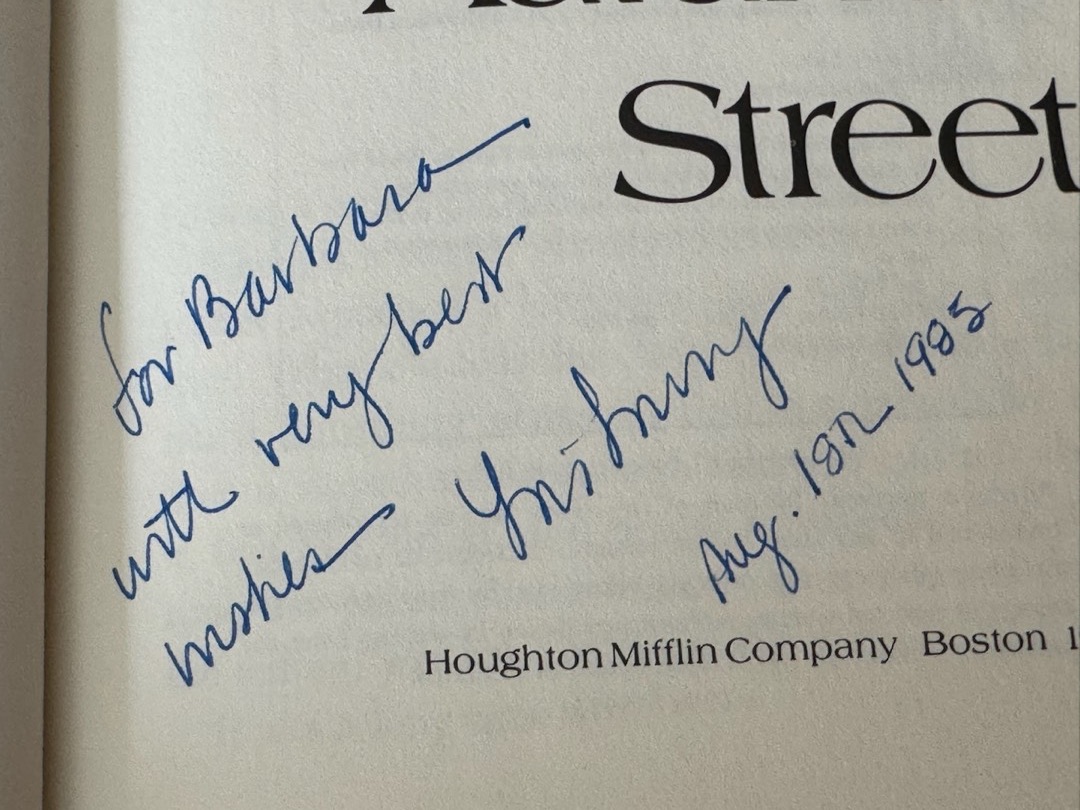 Street
for Barbara
with very best
wishes Lois Lowry
Aug. 18th 1985
Houghton Mifflin Company Boston 1